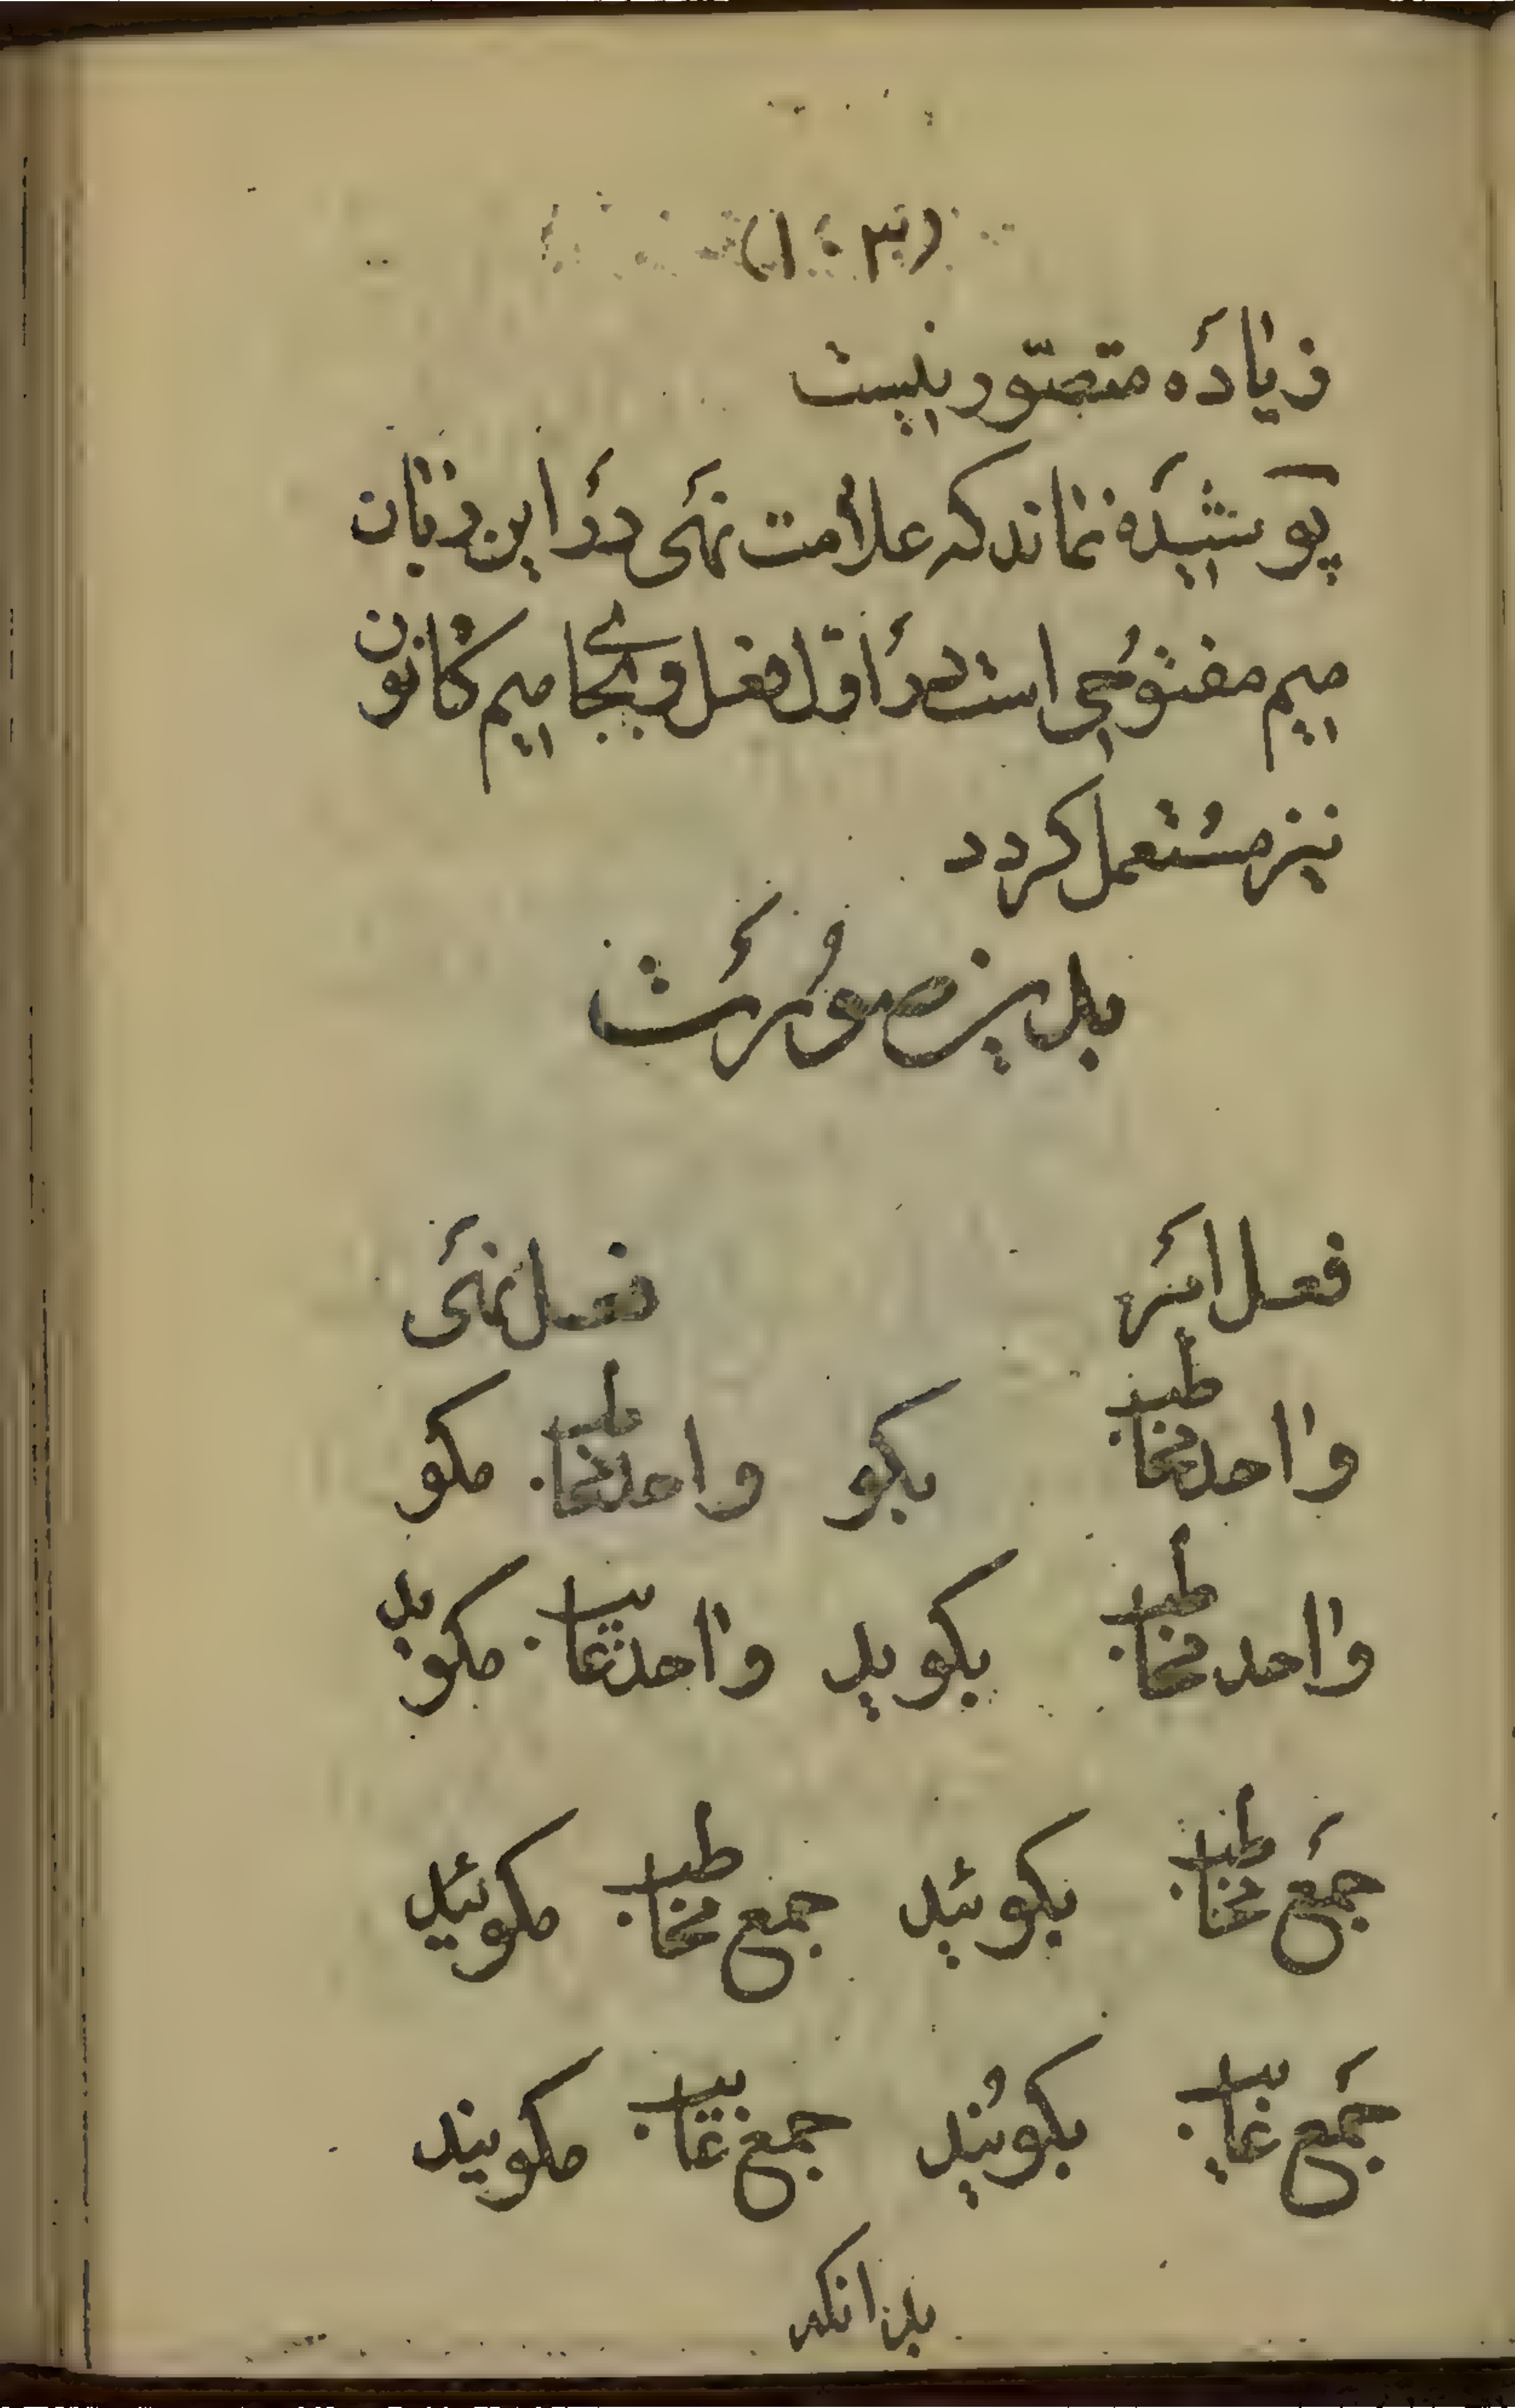 (۱۰۳)
زیاده متصّور نیست
پوشیده نماند که علامت نهی در این زبان
میم مفتوحی است در اوّل فعل و بجای میم کانون
نیز مستعمل کردد
بدین صورت
فعل امر فعل نهی
واحد مخاطب بکو واحد مخاطب مکو
واحد مخاطب بکوید واحد غایب مکوید
جمع مخاطب بکوئید جمع مخاطب مکوئید
جمع غایب بکویند جمع غایب مکویند
بدانکه